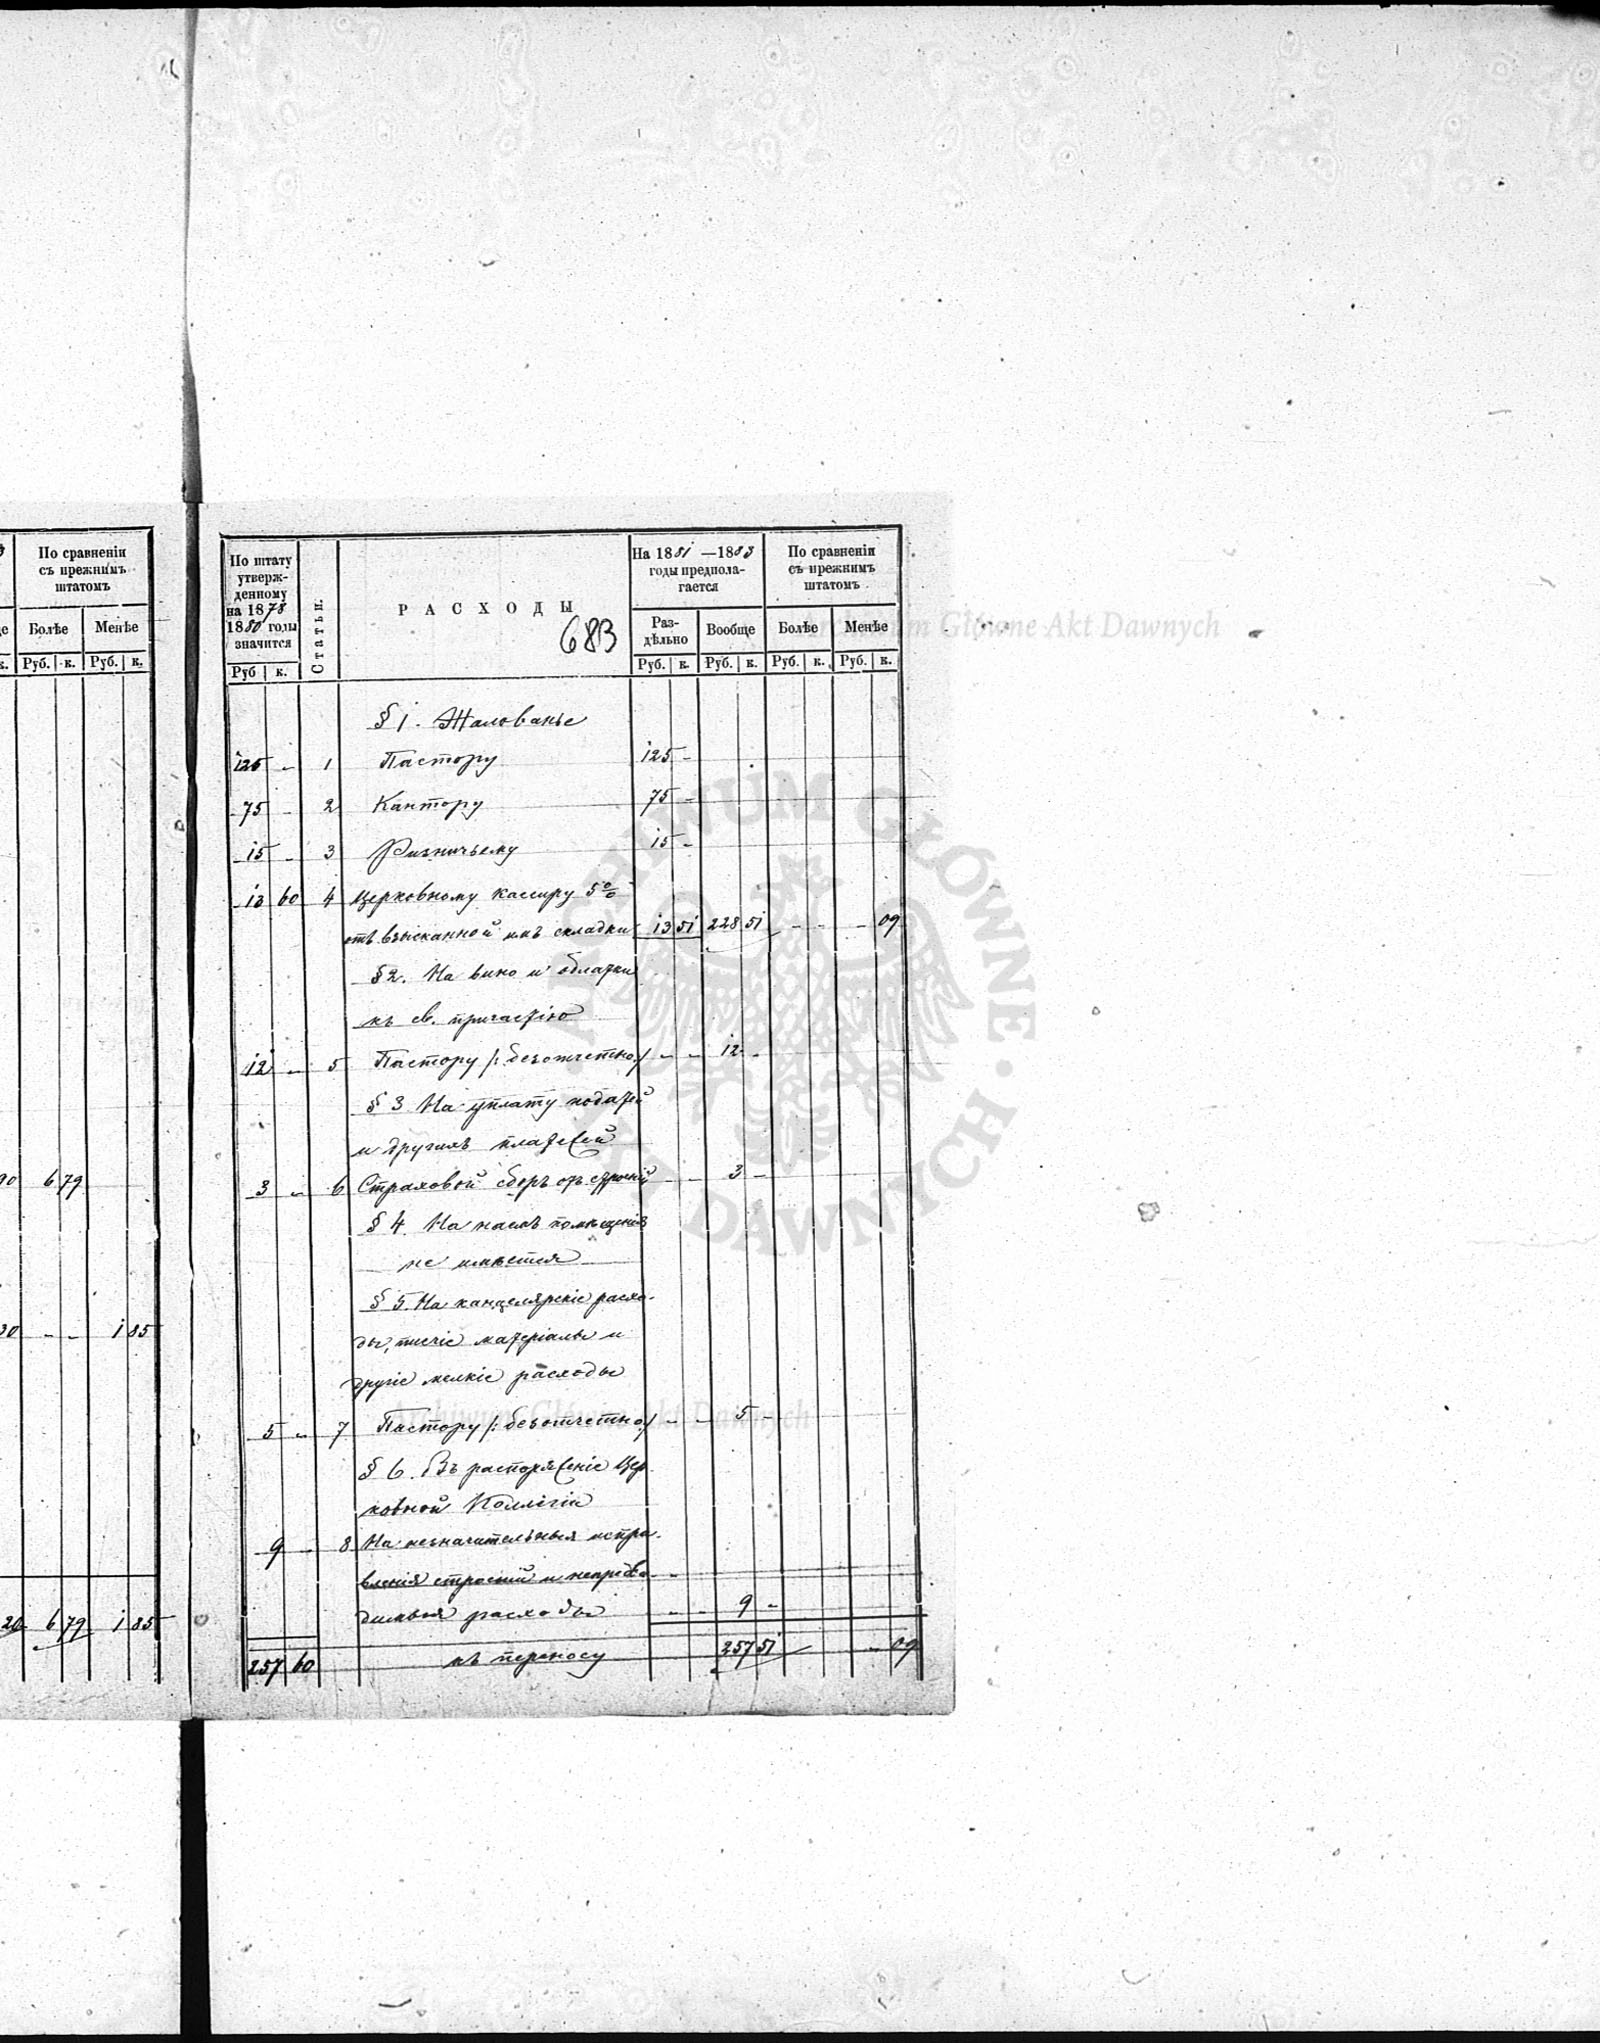 По сравненіи
съ прежнимъ
штатомъ
Болѣе Менѣе
к. Руб. к. Руб. к.
90 6 79
30 - - 1 85
20 6 79 1 85
По штату
утверж-
денному
на 1878
1880 годы
значится
Руб к.
Статьи.
РАСХОДЫ
683
На 1881 —1883
годы предпола-
гается
Раз-
дѣльно
Вообще
Руб. к. Руб. к.
По сравненіи
съ прежнимъ
штатомъ
Болѣе Менѣе
Руб. к. Руб. к.
§ 1. Жалованье
125 - 1 Пастору 125 -
75 - 2 Кантору 75 -
15 - 3 Ризничьему 15 -
13 60 4 Церковному кассиру 5%
отъ взысканной имъ складки 13 51 228 51 - - - 09
§ 2. На вино и облатки
къ св. причастію
12 - 5 Пастору /: безотчетно :/ - - 12 -
§ 3 На уплату податей
и другихъ платежей
3 - 6 Страховой сборъ отъ строеній - - 3 -
§ 4. На наемъ помѣщенія
не имѣется
§ 5. На канцелярскіе расхо-
ды, писчіе матеріалы и
другіе мелкіе расходы
5 - 7 Пастору /: безотчетно :/ - - 5 -
§ 6. Въ распоряженіе Цер-
ковной Коллегіи
9 - 8 На незначительныя испра-
вленія строеній и непредви-
димыя расходы - - 9 -
257 60 къ переносу 257 51 - 09
Archiwum Główne Akt Dawnych
Archiwum Główne Akt Dawnych
ARCHIWUM GŁÓWNE AKT DAWNYCH